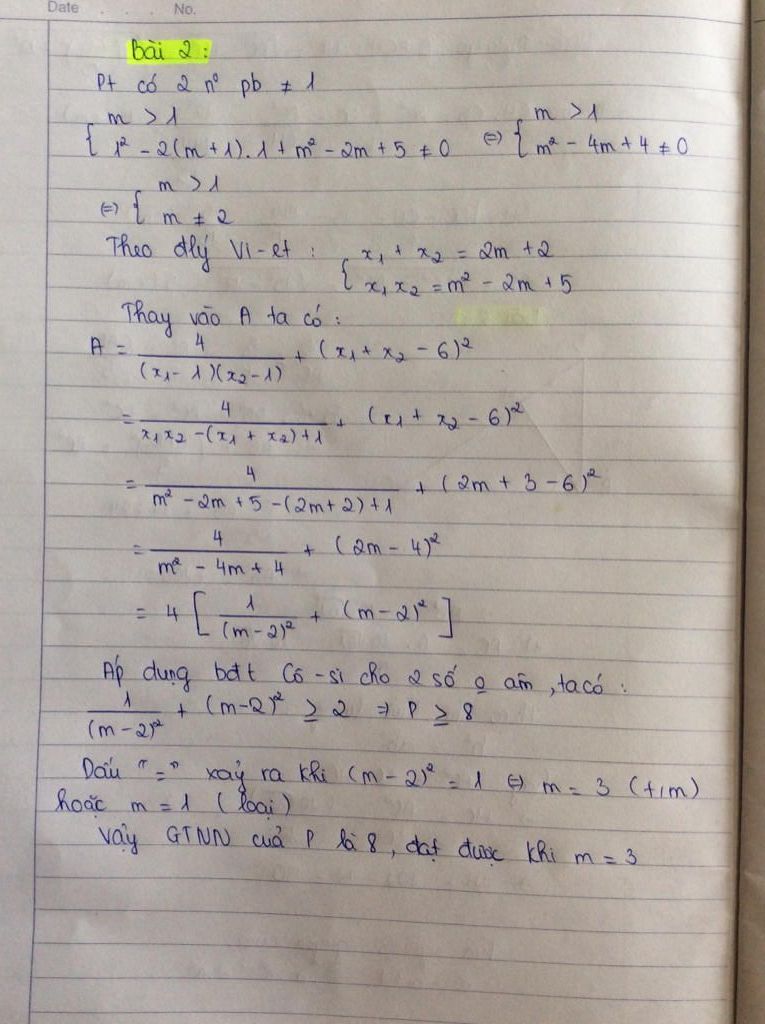 Date . . . No.
Bài 2 :
Pt có 2 n° pb ≠ 1
{ m > 1
1² - 2(m + 1).1 + m² - 2m + 5 ≠ 0 ⇔ { m > 1
m² - 4m + 4 ≠ 0
⇔ { m > 1
m ≠ 2
Theo đlý Vi-et : { x₁ + x₂ = 2m + 2
x₁ x₂ = m² - 2m + 5
Thay vào A ta có :
A = 4 / (x₁ - 1)(x₂ - 1) + (x₁ + x₂ - 6)²
= 4 / x₁x₂ - (x₁ + x₂) + 1 + (x₁ + x₂ - 6)²
= 4 / m² - 2m + 5 - (2m + 2) + 1 + (2m + 3 - 6)²
= 4 / m² - 4m + 4 + (2m - 4)²
= 4 [ 1 / (m - 2)² + (m - 2)² ]
Áp dụng bđt Cô-si cho 2 số o âm, ta có :
1 / (m - 2)² + (m - 2)² ≥ 2 ⇒ P ≥ 8
Dấu "=" xảy ra khi (m - 2)² = 1 ⇔ m = 3 (t/m)
hoặc m = 1 (loại)
Vậy GTNN của P là 8, đạt được khi m = 3